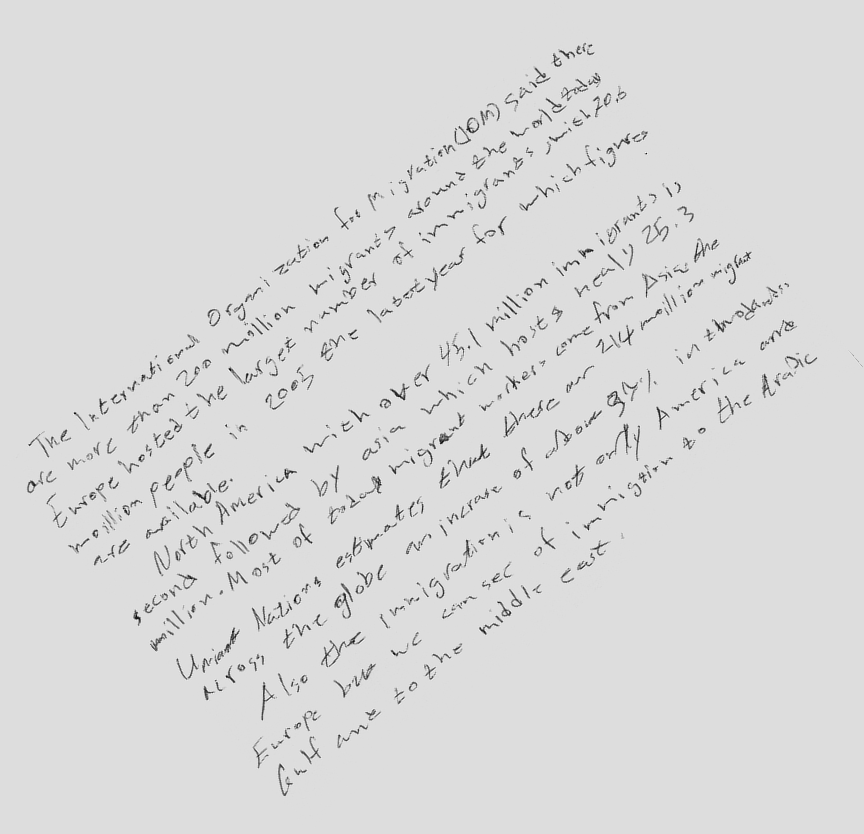 The International Organization for Migration (IOM) said there
are more than 200 million migrants around the world today
Europe hosted the largest number of immigrants, with 70.6
million people in 2005 the latest year for which figures
are available.
North America with over 45.1 million immigrants is
second followed by asia which hosts nealy 25.3
million. Most of today migrant workers come from Asia the
Nations estimates that there our 214 million migrant
across the globe an increase of above 37% in
Also the immigration is not only America and
Europe but we can see of immigtion to the Arabic
Gulf and to the middle east.